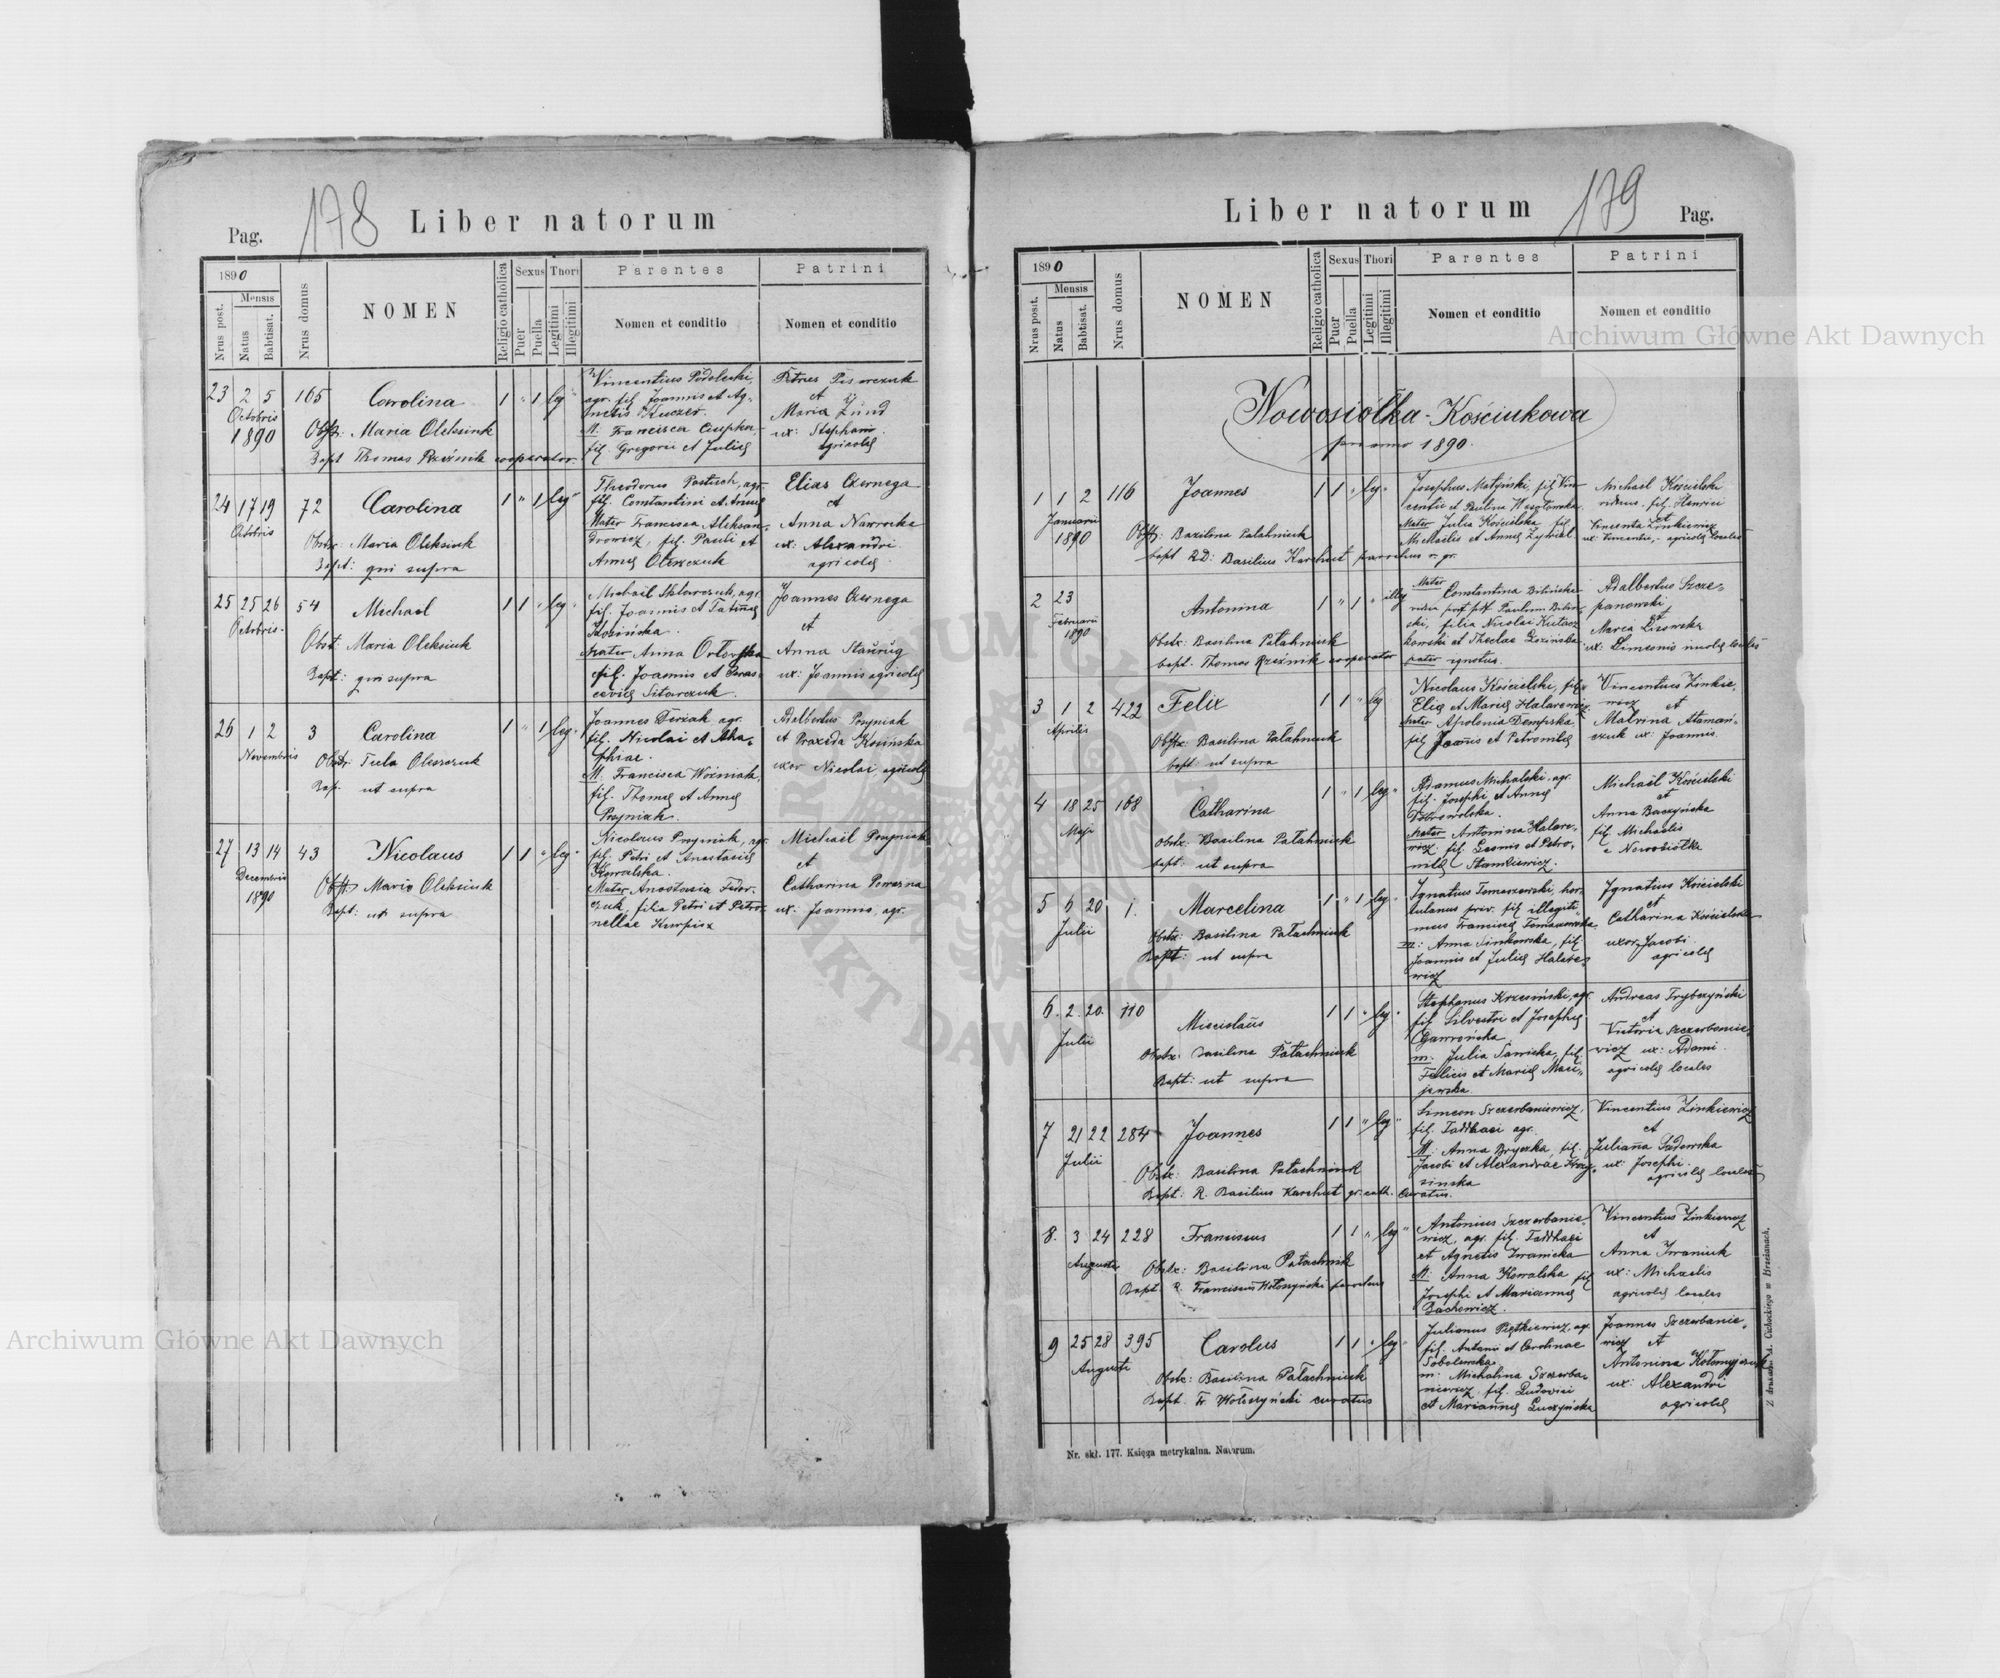 178
Liber natorum
Pag.
1890
Mensis
Nrus post.
Natus
Babtisat.
Nrus domus
NOMEN
Religio catholica
Sexus
Puer
Puella
Thori
Legitimi
Illegitimi
Parentes
Nomen et conditio
Patrini
Nomen et conditio
23 2 5 105 Carolina 1 " 1 leg "
Octobris
1890
Obstx: Maria Oleksiuk
Bapt Thomas Rzeźnik cooperator.
Vincentius Podolecki,
agr. fil. Joannis et Ag-
netis Kuczer.
M. Francisca
fil. Gregorii et Juliae
Petrus Pisarczuk
et
Maria Zund
ux: Stephani
agricolae
24 17 19 72 Carolina 1 " 1 leg "
Octobris
Obstx: Maria Oleksiuk
Bapt: qui supra
Theodorus Pastuch, agr.
fil. Constantini et Annae
Mater Francisca Aleksan-
drowicz, fil. Pauli et
Annae Oleszczuk
Elias Czernega
et
Anna Nawrocka
ux: Alexandri
agricolae
25 25 26 54 Michael 1 1 " leg "
Octobris.
Obst: Maria Oleksiuk
Bapt: qui supra
fil. Joannis et
Kosińska.
Mater Anna Orłowska
fil. Joannis et Paras-
ceviae Sitarczuk.
Joannes Czernega
et
Anna
ux: Joannis agricolae
26 1 2 3 Carolina 1 " 1 leg "
Novembris
Obstx: Tecla Oleszczuk
Bap. ut supra
Joannes agr.
fil. Nicolai et Aga-
phiae.
M. Francisca Woźniak,
fil. Thomae et Annae
Pozyniak.
Adalbertus Pozyniak
et Praxeda Kosińska
uxor Nicolai, agricolae
27 13 14 43 Nicolaus 1 1 " leg "
Decembris
1890
Obstx Maria Oleksiuk
Bapt: ut supra
Nicolaus Pozyniak, agr.
fil. Petri et Anastasiae
Kowalska.
Mater Anastasia Fedor-
czuk, filia Petri et Petro-
nellae
Michaël Pozyniak
et
Catharina
ux: Joannis, agr.
179
Liber natorum
Pag.
1890
Mensis
Nrus post.
Natus
Babtisat.
Nrus domus
NOMEN
Religio catholica
Sexus
Puer
Puella
Thori
Legitimi
Illegitimi
Parentes
Nomen et conditio
Patrini
Nomen et conditio
Nowosiółka-Kościukowa
pro anno 1890.
1 1 2 116 Joannes 1 1 " leg "
Januarii
1890
Obstx: Bazilina Pałahniuk
bapt RD: Basilius Karchut parochus r. gr.
Josephus Matyński, fil. Vin-
centii et Paulina Wesołowska
Mater Julia Kościelska fil.
Michaelis et Annae
Michaël Kościelski
viduus, fil. Henrici
et
Vincenta Zinkiewicz
ux: Vincentii, agricolae locales
2 23 Antonina 1 " 1 " illeg
Februarii
1890
Obstx: Basilina Pałahniuk
bapt. Thomas Rzeźnik cooperator
Mater Constantina Bilińska
vidua post Paulum Biliń-
ski, filia Nicolai
kowski et Theclae
pater ignotus.
Adalbertus Szcze-
panowski
et
Maria Lisowska
ux: Simeonis
3 1 2 422 Felix 1 1 " leg
Aprilis
Obstx: Basilina Pałahniuk
bapt: ut supra
Nicolaus Kościelski, fil.
Eliae et Mariae Halarewicz
Mater Apolonia Dempska
fil Joannis et Petronelae
Vincentius Zinkie-
wicz et
Matrina Ataman-
czuk ux: Joannis.
4 18 25 168 Catharina 1 " 1 leg "
Maji
Obstx: Basilina Pałahniuk
bapt: ut supra
Adamus Michalski, agr.
fil. Josephi et Annae
Dobrowolska.
Mater Antonina Halare-
wicz fil. Leonis et Petro-
nelae Stankiewicz.
Michaël Kościelski
et
Anna Baczyńska
fil. Michaelis
e Nowosiółka
5 6 20 1. Marcelina 1 " 1 leg "
Julii
Obstx: Basilina Pałachniuk
Bapt: ut supra
Ignatius Tomaszewski, hor-
tulanus priv. fil. illegiti-
mus Franciscae Tomaszewska.
m: Anna Sinkowska, fil.
Joannis et Juliae Halare-
wicz
Ignatius Kościelski
et
Catharina Kościelska
uxor Jacobi
agricolae
6. 2. 20. 110 Miecislaus 1 1 " leg "
Julii
Obstx: Basilina Pałachniuk
Bapt: ut supra
Stephanus Krzesiński, agr.
fil. Silvestri et Josephae
Gawrońska
m: Julia Sawicka, fil.
Felicis et Mariae Maci-
jewska
Andreas Trybczyński
et
Victoria Szczerbanie-
wicz ux: Adami
agricolae locales
7 21 22 284 Joannes 1 1 " leg "
Julii
Obstx: Basilina Pałachniuk
Bapt: R. Basilius Karchut gr. cath. curatus.
Simeon Szczerbaniewicz,
fil. Taddhaei agr.
M. Anna Bryczka, fil.
Jacobi et Alexandrae
sinska
Vincentius Zinkiewicz
et
Julianna Sadowska
ux: Josephi
agricolae locales
8. 3 24 228 Franciscus 1 1 " leg "
Augusti
Obstx: Basilina Pałachniuk
Bapt. R. Franciscus Wołoszyński parochus
Antonius Szczerbanie-
wicz, agr. fil. Taddhaei
et Agnetis Iwanicka
M: Anna Kowalska fil
Josephi et Mariannae
Bachowicz.
Vincentius Zinkiewicz
et
Anna Iwaniuk
ux: Michaelis
agricolae locales
9 25 28 395 Carolus 1 1 " leg "
Augusti
Obstx: Basilina Pałachniuk
Bapt. Fr. Wołoszyński curatus
Julianus Piętkiewicz, agr.
fil. Antonii et Carolinae
Sobolewska
m: Michalina Szczerba-
niewicz, fil. Ludovici
et Mariannae Luczyńska
Joannes Szczerbanie-
wicz et
Antonina Kołomyjczuk
ux: Alexandri
agricolae
Nr. skł. 177. Księga metrykalna. Natorum.
Z drukarni A. Cichockiego w Brzeżanach.
Archiwum Główne Akt Dawnych
Archiwum Główne Akt Dawnych